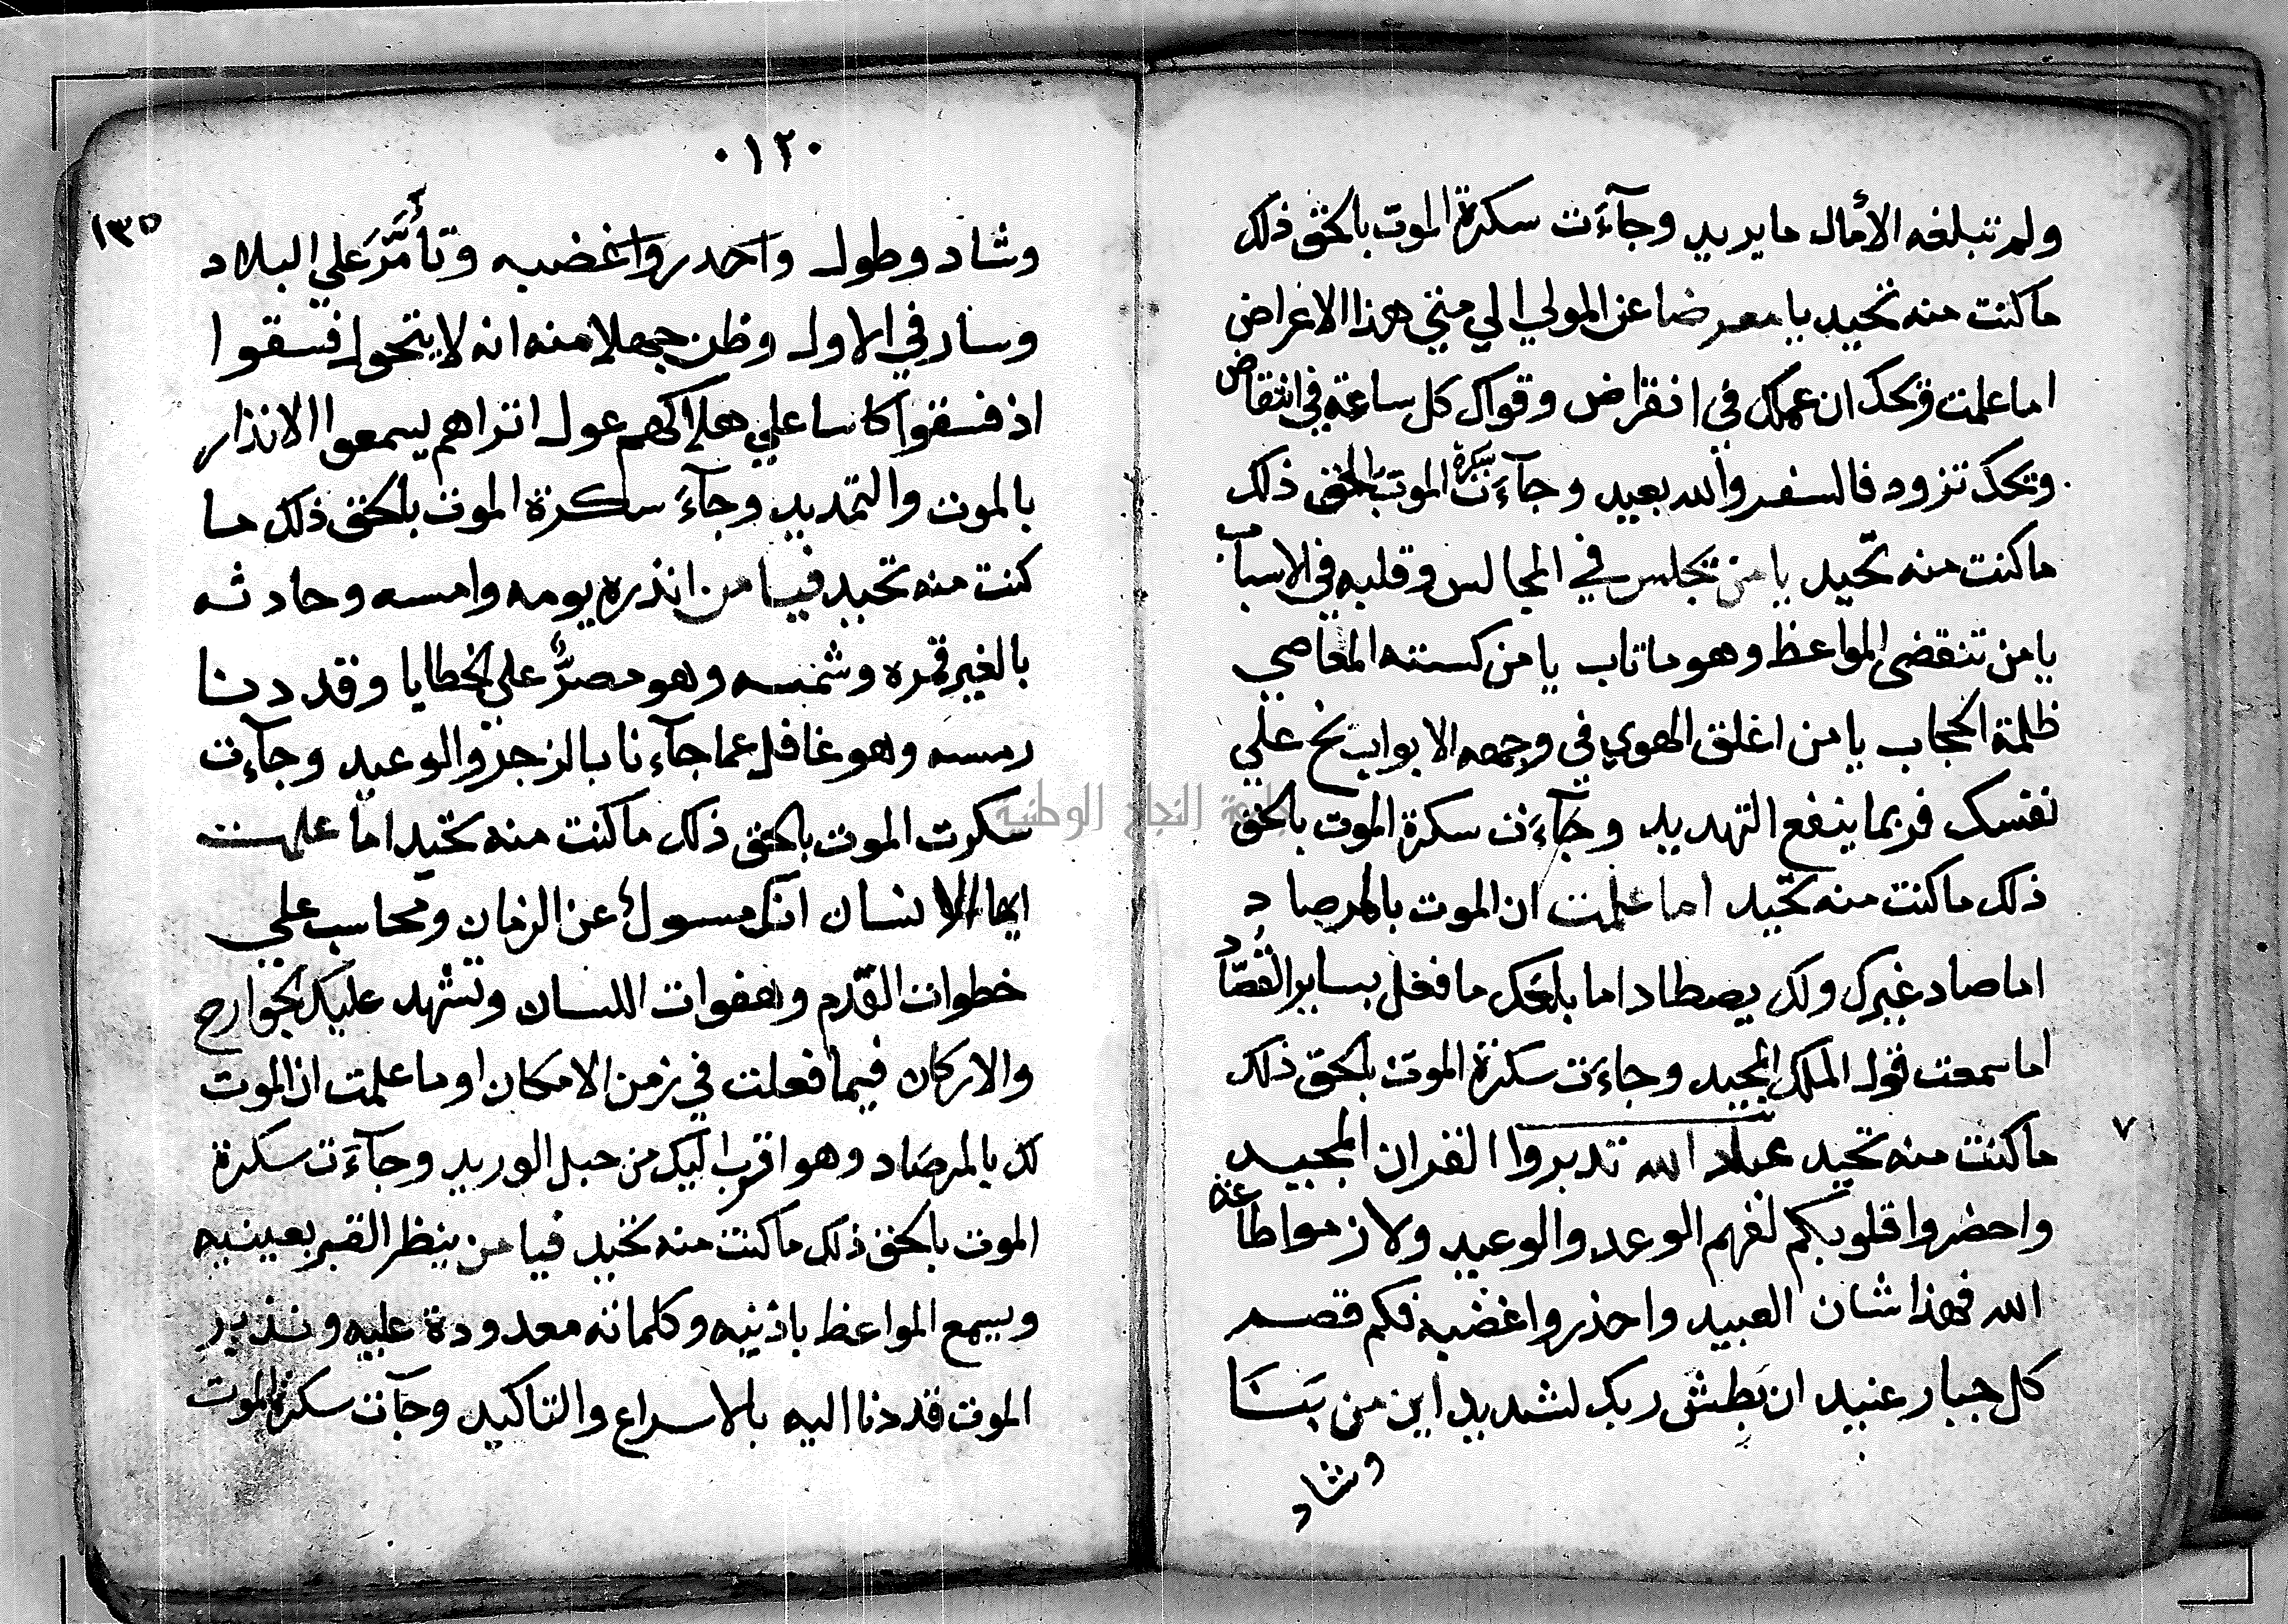 ولم تبلغه الأمال ما يريد وجآءت سكرة الموت بالحق ذلك
ما كنت منه تحيد يا معرضا عن المولي الي متي هذا الاعراض
اما علمت ويحك ان عمرك في انقراض وقواك كل ساعة في انتقاض
ويحك تزود فالسفر والله بعيد وجآءت سكرة الموت بالحق ذلك
ما كنت منه تحيد يا من يجلس في المجالس وقلبه في الاسباب
يا من تنقضى المواعظ وهو ما تاب يا من كسته المعاصي
ظلمة الحجاب يا من اغلق الهوي في وجهه الابواب نح علي
نفسك فربما ينفع التهديد وجآءت سكرة الموت بالحق
ذلك ما كنت منه تحيد اما علمت ان الموت بالمرصاد
اما صاد غيرك ولك يصطاد اما بلغك ما فعل بساير القصاد
اما سمعت قول الملك المجيد وجاءت سكرة الموت بالحق ذلك
ما كنت منه تحيد عباد الله تدبروا القران المجيد
واحضروا قلوبكم لفهم الوعد والوعيد ولازموا طاعة
الله فهذا شان العبيد واحذروا غضبه فكم قصم
كل جبار عنيد ان بطش ربك لشديد اين من بنا
وشاد
٠١٢٠
١٣٥
وشاد وطول واحدروا غضبه وتأمر علي البلاد
وساد في الاول وظن جهلا منه انه لا يتحول فسقوا
اذ فسقوا كاسا علي هلاكهم عول اتراهم يسمعوا الانذار
بالموت والتمديد وجآء سكرة الموت بالحق ذلك ما
كنت منه تحيد فيا من انذره يومه وامسه وحادثه
بالغير قمره وشمسه وهو مصر علي الخطايا وقد دنا
رمسه وهو غافل عما جآءنا بالزجر والوعيد وجآءت
سكرت الموت بالحق ذلك ما كنت منه تحيد اما علمت
ايها الانسان انك مسول عن الزمان ومحاسب علي
خطوات القدم وهفوات اللسان وتشهد عليك الجوارح
والاركان فيما فعلت في زمن الامكان او ما علمت ان الموت
لك بالمرصاد وهو اقرب اليك من حبل الوريد وجآءت سكرة
الموت بالحق ذلك ما كنت منه تحيد فيا من ينظر القبر بعينيه
ويسمع المواعظ باذنيه وكلماته معدودة عليه ونذير
الموت قد دنا اليه بالاسراع والتاكيد وجآت سكرة الموت
جامعة النجاح الوطنية